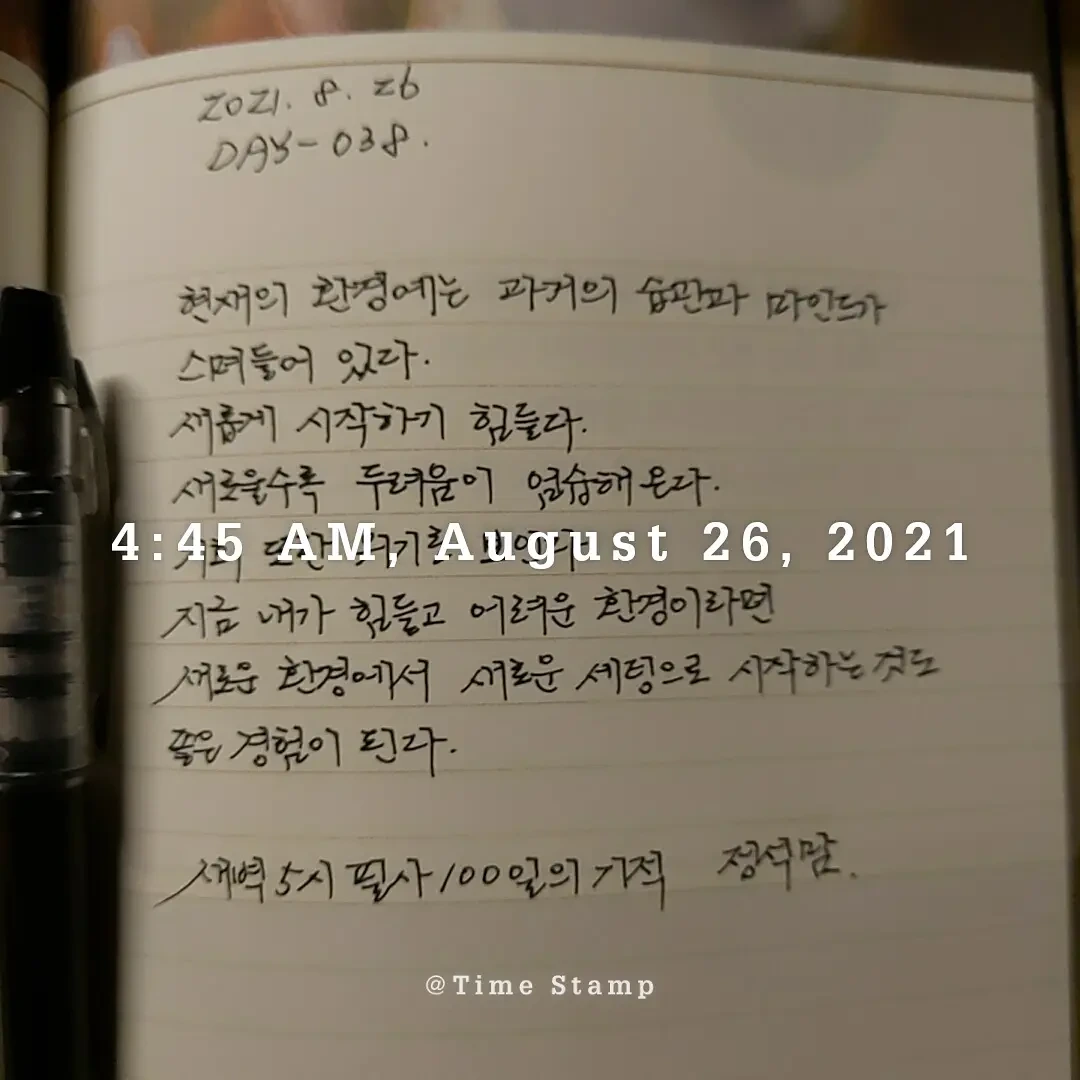 2021. 8. 26
DAY-038.
현재의 환경에는 과거의 습관과 마인드가
스며들어 있다.
새롭게 시작하기 힘들다.
새로울수록 두려움이 엄습해 온다.
4:45 AM, August 26, 2021
지금 내가 힘들고 어려운 환경이라면
새로운 환경에서 새로운 세팅으로 시작하는 것도
좋은 경험이 된다.
새벽 5시 필사 100일의 기적 정석맘.
@Time Stamp